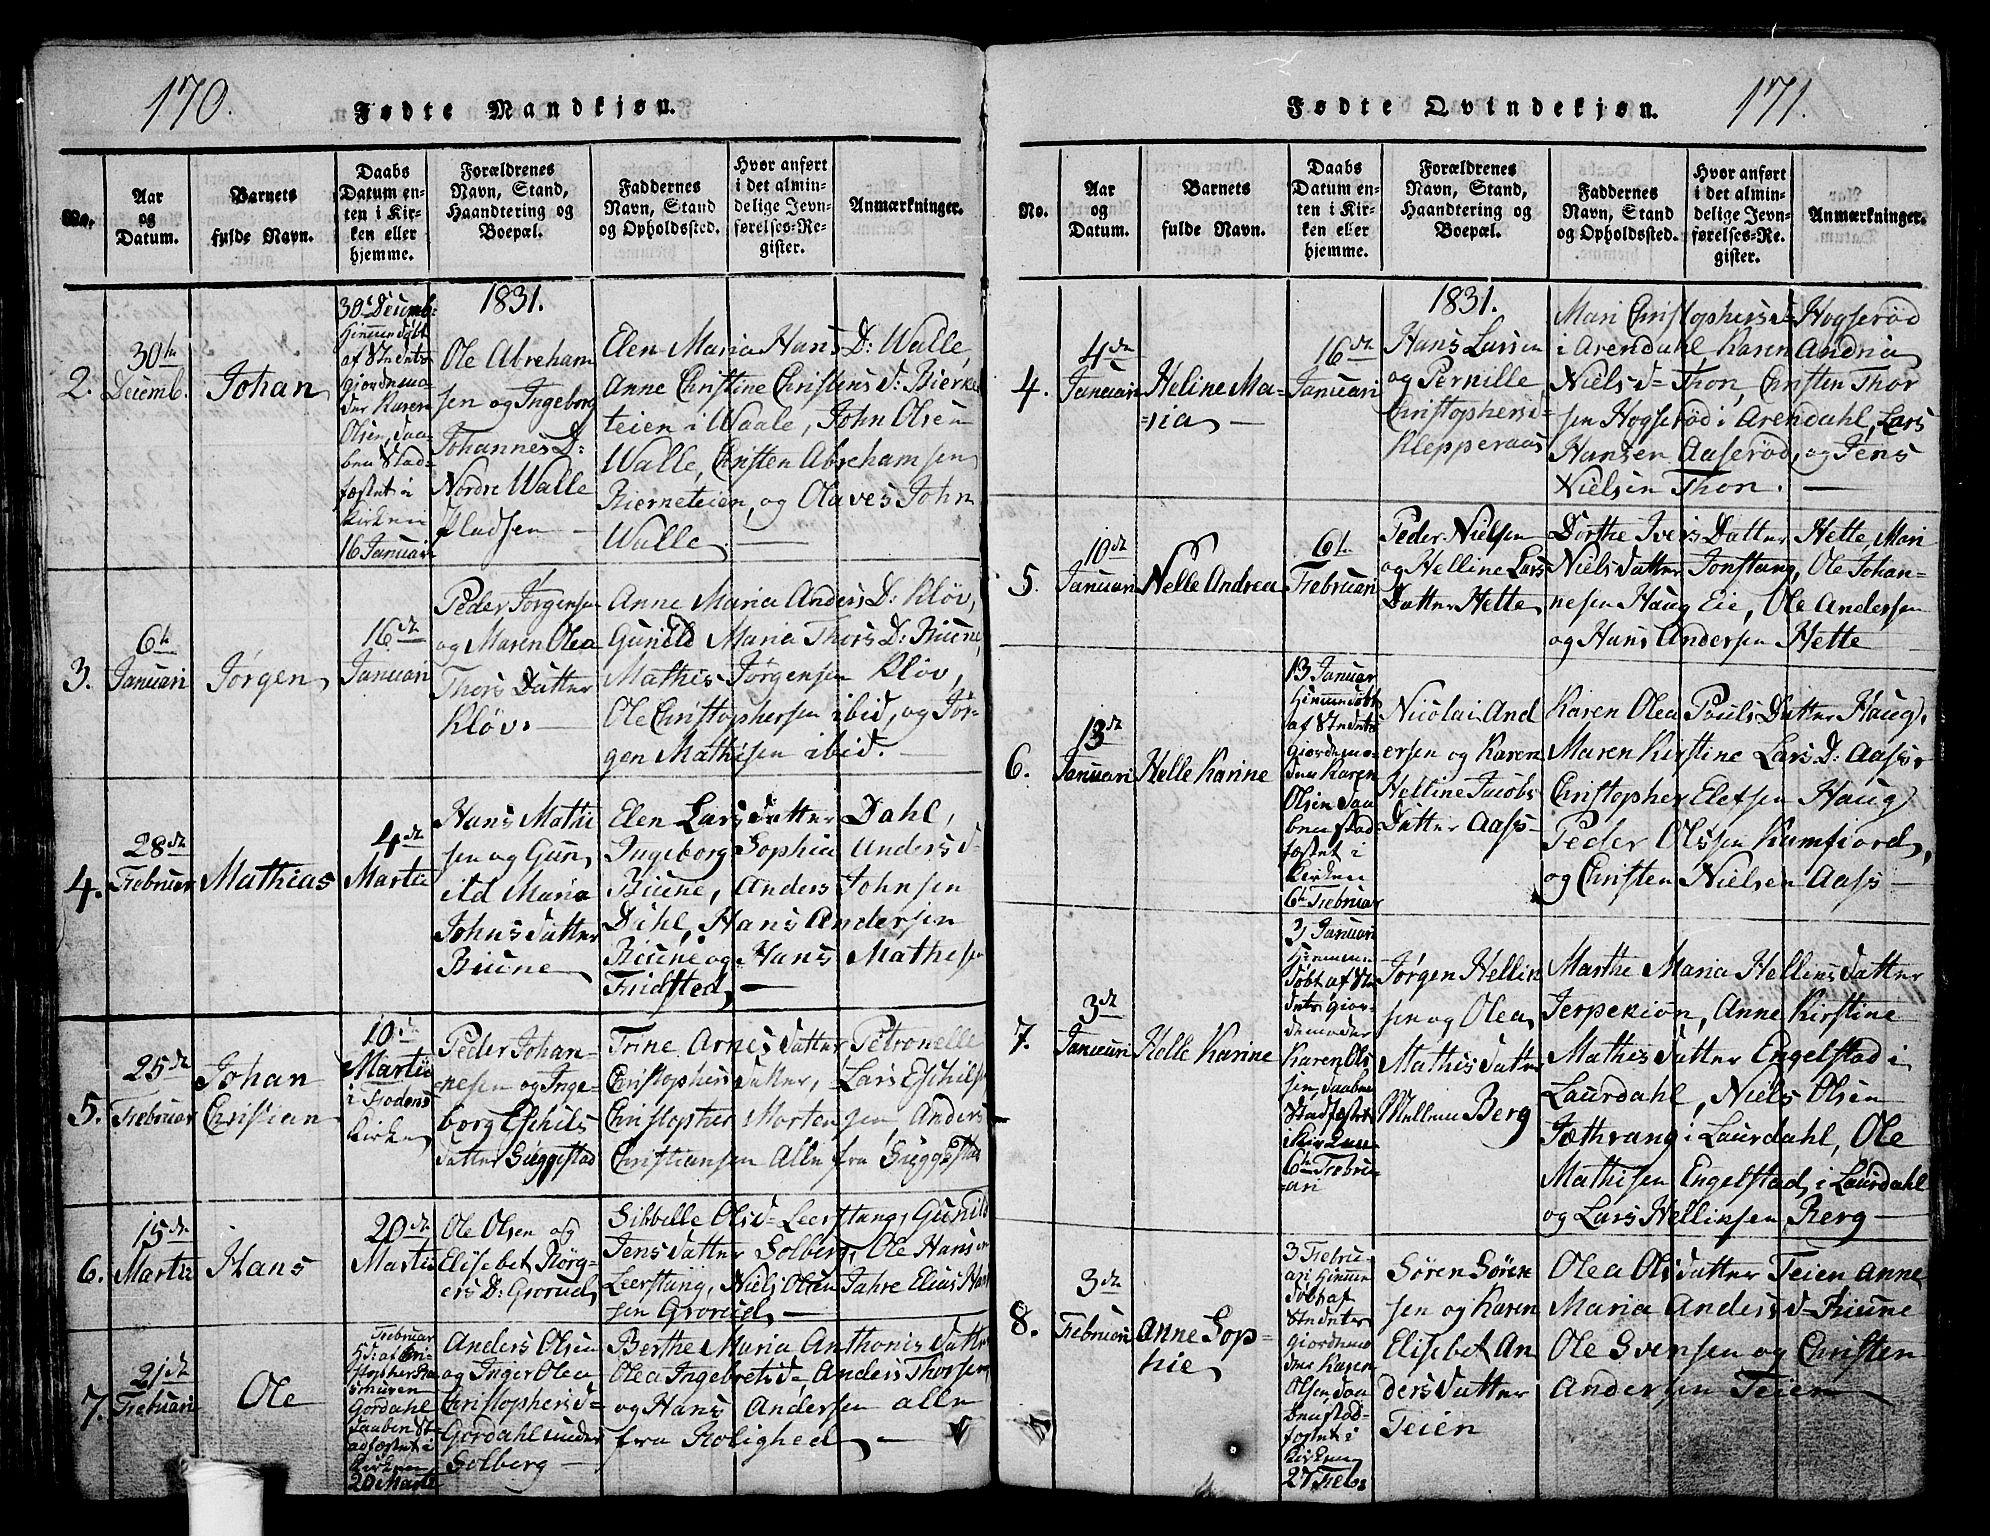 170.
Fødte Mandkjøn.
No.
Aar
og
Datum.
Barnets
fulde Navn.
Daabs
Datum en-
ten i Kir-
ken eller
hjemme.
Forældrenes
Navn, Stand,
Haandtering og
Boepæl.
Faddernes
Navn, Stand
og Opholdssted.
Hvor anført
i det almin-
delige Jevn-
førelses-Re-
gister.
Anmærkninger.
2.
30te
Decemb.
Johan
30te Decemb:
Hiemmedøbt
af
Giordemo-
der Karen
Olsen, Daa-
ben Stad-
fæstet i
Kirken
16 Januari
1831.
Ole Abreham
sen og Ingeborg
Johannes D:
Nordre Walle
Pladsen —
Elen Maria Hans D: Walle,
Anne Christine Christens d: Bierke
teien i Waale, John Olsen
Walle, Christen Abrehamsen
Bierneteien, og Olaves John
Walle. —
3.
6te
Januari
Jørgen
16de
Januari
Peder Jørgensen
og Maren Olea
Thors Datter
Kløv.
Anne Maria Anders D: Kløv,
Gunild Maria Thors D: Biune,
Mathis Jørgensen Kløv,
Ole Christophersen ibid, og Jør-
gen Mathisen ibid. —
4.
28de
Februar
Mathias
4de
Martii
Hans Mathi
sen og Gun
ild Maria
Johns datter
Biune
Elen Lars datter Dahl,
Ingeborg Sophia Anders d=
Biune, Anders Johnsen
Dahl, Hans Andersen
Biune og Hans Mathesen
Fridsted, —
5.
25de
Februar
Johan
Christian
10de
Martii
i Bodens
Kirken
Peder Johan-
nesen og Inge-
borg Eschils
datter Suggestad
Trine Arnes datter Petronelle
Christophers datter, Lars Eschils
Christopher Mortensen, Anders
Christiansen Alle fra Suggestad
6.
15de
Martii
Hans
20de
Martii
Ole Olsen og
Elisebet Børg-
ers D: Grorud,
Sibbelle Ols d= Leerstang, Gunild
Jens datter Solberg, Ole Hansen
Leerstang, Niels Olsen Jahre Elias Han
sen Grorud, —
7.
21de
Februari
Ole
Februar
Gordahl
Daaben St-
adfæstet i
Kirken
20 Martii
Anders Olsen
og Inger Olea
Christophers d=
Gordahl under
Solberg —
Berthe Maria Anthonis datter
Olea Ingebrets d= Anders Thorsen
og Hans Andersen alle
fra Rolighed —
171.
Fødte Qvindekjøn.
No.
Aar
og
Datum.
Barnets
fulde Navn.
Daabs
Datum en-
ten i Kir-
ken eller
hjemme.
Forældrenes
Navn, Stand,
Haandtering og
Boepæl.
Faddernes
Navn, Stand
og Opholdssted.
Hvor anført
i det almin-
delige Jevn-
førelses-Re-
gister.
Anmærkninger.
4.
4de
Januari
Heline Ma-
ria —
16de
Januari
1831.
Hans Larsen
og Pernille
Christophers d=
Klepperaas
Mari Christophers d= Hogserød
i Arendahl, Karen Andria
Niels d= Thon, Christen Thor
sen Hogserød i Arendahl, Lars
Hansen Aaserød, og Jens
Nielsen Thon. —
5.
10de
Januari
Nelle Andrea
6te
Februari
Peder Nielsen
og Helline Lars
Datter Hette
Dorthe Ivers Datter Hette, Mari
Niels datter Jonstang, Ole Johan-
nesen Haug Eie, Ole Andersen
og Hans Andersen Hette
6.
13de
Januari
Helle Karine
13 Januar
Hiemmedøbt
af
Giordemo-
deren Karen
Olsen Daa
ben stad
fæstet i
Kirken
6te Februar
Nicolai And
ersen og Karen
Helline Jacobs
Datter Aass-
Karen Olea Pouls Datter Haug,
Maren Kirstine Lars D: Aass,
Christopher Elefsen Haug
Peder Olssen Kamfiord,
og Christen Nielsen Aass —
7.
3de
Januari
Helle Karine
3 Januari
Hiemme
døbt af
giore
demoder
Karen Ol
sen, Daaben
Stadfæstet
i Kirken
6te Febru-
ari
Jørgen Hellin
sen og Olea
Mathis datter
Mellem Berg
Marthe Maria Hellins datter
Jerpekiøn, Anne Kirstine
Mathis datter Engelstad i
Laurdahl, Niels Olsen
Jæthvang i Laurdahl, Ole
Mathisen Engelstad, i Laurdahl
og Lars Hellinsen Berg —
8.
3de
Februari
Anne Sop-
hie
3 Febru-
ari Hiemme
døbt af
Giordemo
der Karen
Olsen, Daa
ben stad-
fæstet i
Kirken
27 Feb:
Søren Søren
sen og Karen
Elisebet An
ders datter
Teien
Olea Ols datter Teien Anne
Maria Anders d= Biune
Ole Svensen og Christen
Andersen Teien